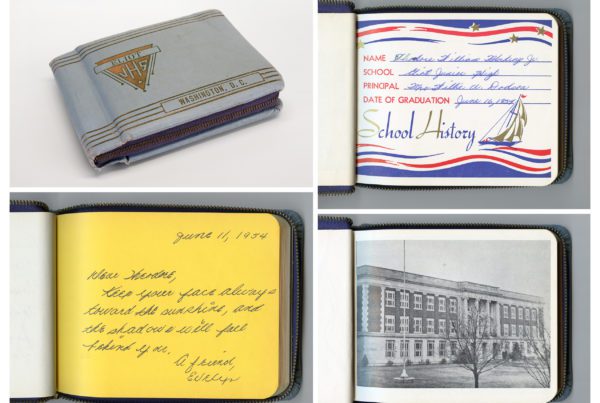 ELIOT
JHS
WASHINGTON, D.C.
NAME Theodore William Jr.
SCHOOL Eliot Junior High
PRINCIPAL Mrs. A. Dodson
DATE OF GRADUATION June 16, 1954
School History
June 11, 1954
Dear Theodore,
Keep your face always
toward the sunshine, and
the shadows will fall
behind you.
A friend,
Evelyn